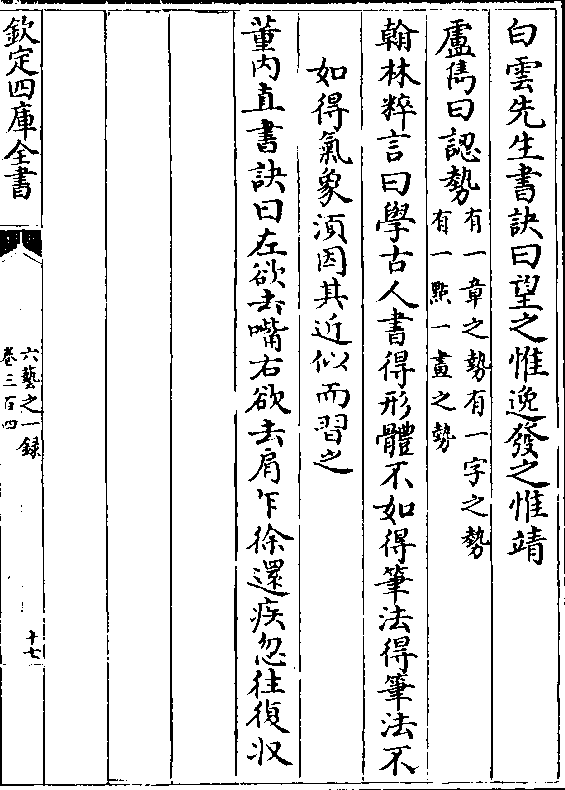 白雲先生書訣曰望之惟逸發之惟靖
盧雋曰認勢有一章之勢有一字之勢
有一點一畫之勢
翰林粹言曰學古人書得形體不如得筆法得筆法不
如得氣象須因其近似而習之
董內直書訣曰左欲去嘴右欲去肩乍徐還疾忽往復收
欽定四庫全書
六藝之一錄
卷三百四
十七